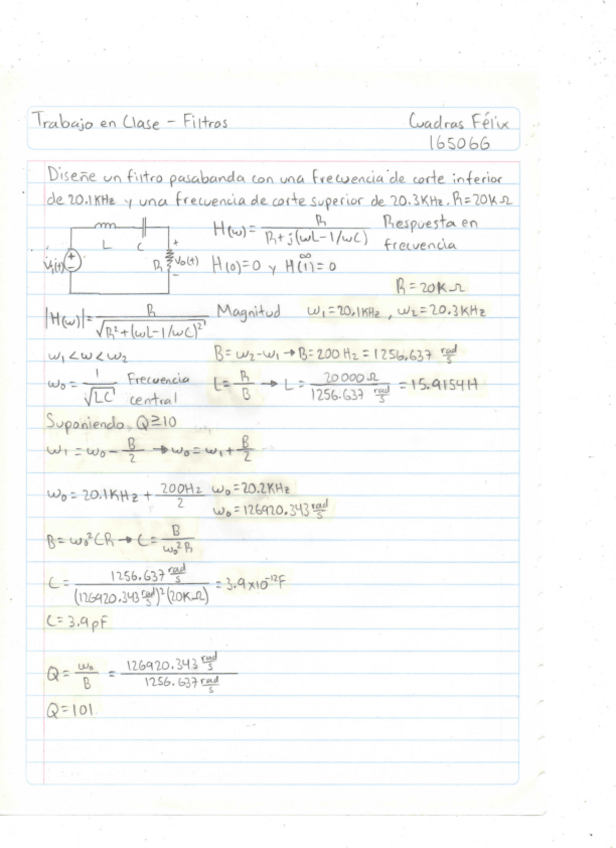 Trabajo en Clase - Filtros Cuadras Félix
165066
Diseñe un filtro pasabanda con una frecuencia de corte inferior
de 20.1KHz y una frecuencia de corte superior de 20.3KHz. R=20KΩ
L C + R Vo(t) - Vi(t) +
H(ω)= R / R+j(ωL-1/ωC) Respuesta en
frecuencia
H(0)=0 y H(∞)=0
R=20KΩ
|H(ω)|= R / √(R²+(ωL-1/ωC)²) Magnitud ω₁=20.1KHz, ω₂=20.3KHz
ω₁<ω<ω₂ B=ω₂-ω₁→B=200Hz=1256.637 rad/s
ω₀= 1/√LC Frecuencia
central
L= R/B → L= 20000Ω / 1256.637 rad/s = 15.9154H
Suponiendo Q≥10
ω₁=ω₀- B/2 →ω₀=ω₁+ B/2
ω₀=20.1KHz+ 200Hz/2 ω₀=20.2KHz
ω₀=126920.343 rad/s
B=ω₀²CR→C= B/ω₀²R
C= 1256.637 rad/s / (126920.343 rad/s)²(20KΩ) = 3.9x10⁻¹²F
C=3.9pF
Q= ω₀/B = 126920.343 rad/s / 1256.637 rad/s
Q=101